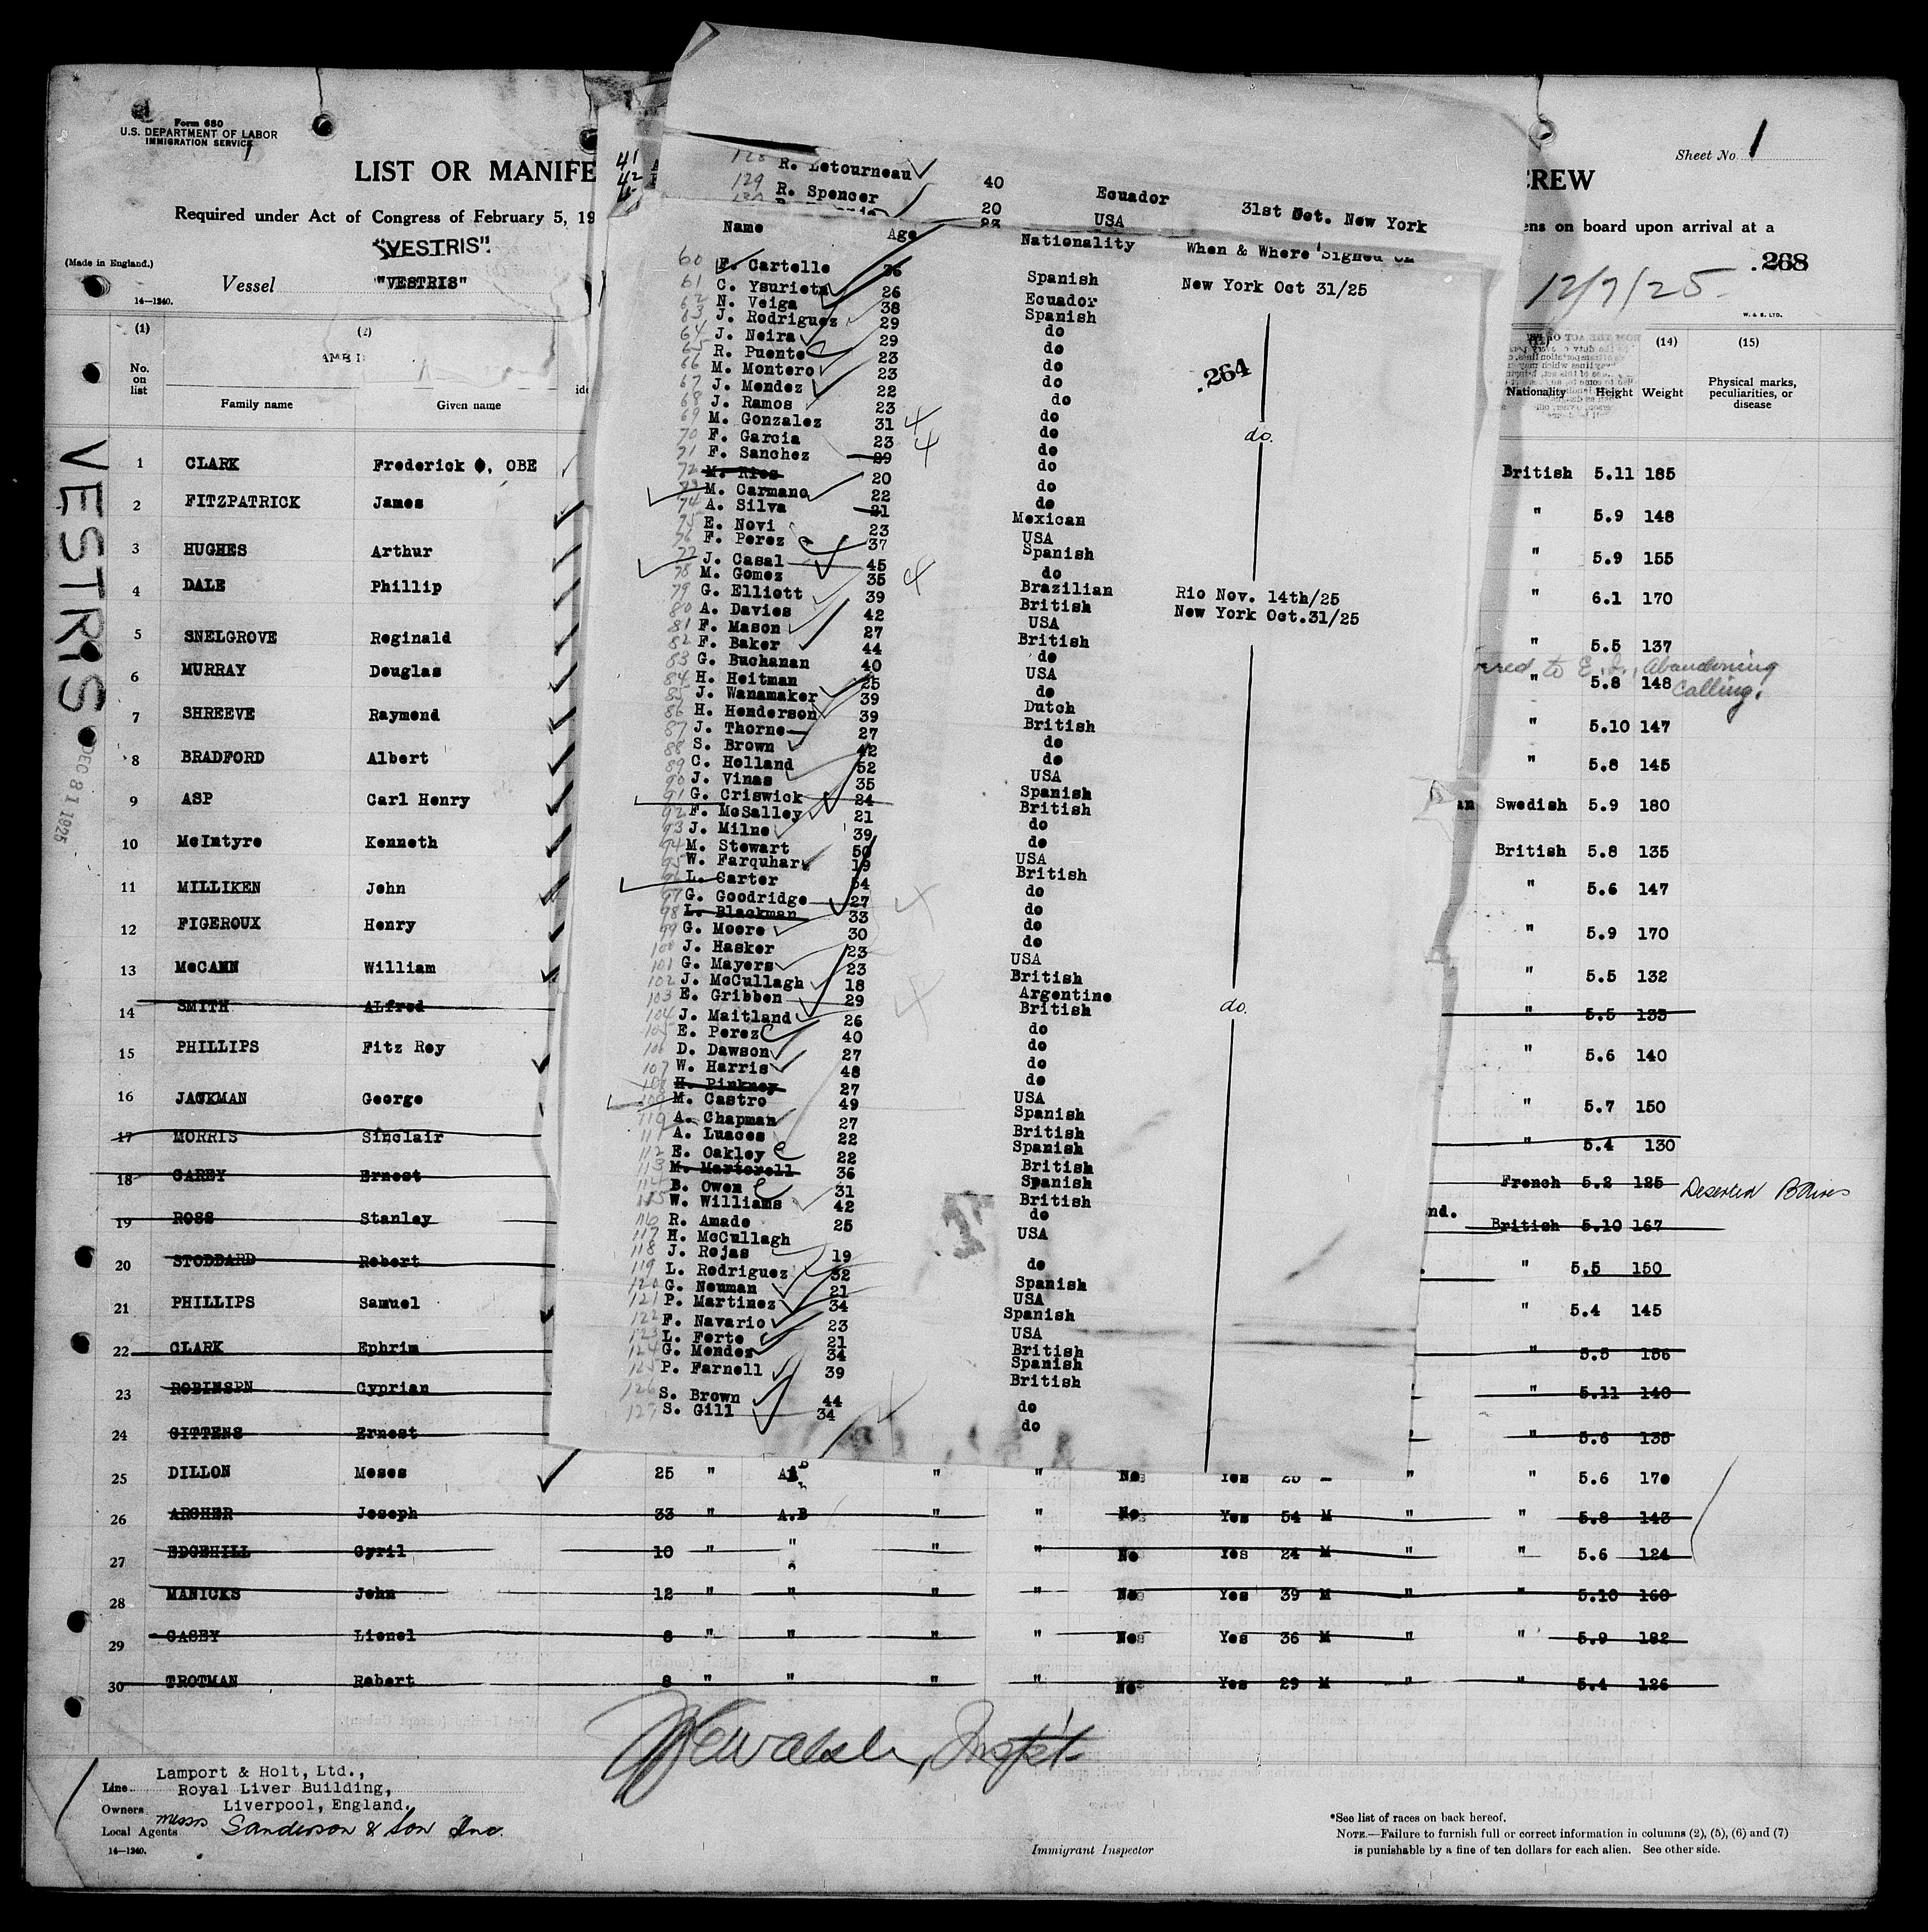 Form 680
U.S. DEPARTMENT OF LABOR
IMMIGRATION SERVICE
LIST OR MANIFE
Required under Act of Congress of February 5, 19
"VESTRIS".
(Made in England.)
Vessel "VESTRIS"
14—1240.
CREW
Sheet No. 1
ens on board upon arrival at a
.268
12/7/25
W. & S. LTD.
(1) (2) (14) (15)
No. on list
Family name Given name
Nationality Height Weight Physical marks, peculiarities, or disease
VESTRIS
DEC 8 1925
41
42
128 R. Letourneau 40 Ecuador 31st Oct. New York
129 R. Spencer 20 USA
23
Name Age Nationality When & Where Signed on
60 F. Cartelle 36 Spanish New York Oct 31/25
61 C. Ysurieta 26 Ecuador
62 N. Veiga 38 Spanish
63 J. Rodriguez 29 do
64 J. Neira 29 do
65 R. Puente 23 do
66 M. Montero 23 do
67 J. Mendez 22 do
68 J. Ramos 23 do
69 M. Gonzalez 31 do
70 F. Garcia 23 do
71 F. Sanchez 29 do
72 M. Rios 20 do
73 M. Carmano 22 do
74 A. Silva 21 Mexican
75 E. Novi 23 USA
76 F. Perez 37 Spanish
77 J. Casal 45 do
78 M. Gomez 35 Brazilian Rio Nov. 14th/25
79 G. Elliott 39 British New York Oct.31/25
80 A. Davies 42 USA
81 F. Mason 27 British
82 F. Baker 44 do
83 G. Buchanan 40 USA
84 H. Heitman 25 do
85 J. Wanamaker 39 Dutch
86 H. Henderson 39 British
87 J. Thorne 27 do
88 S. Brown 42 do
89 C. Holland 52 USA
90 J. Vinas 35 Spanish
91 G. Criswick 24 British
92 F. McSalley 21 do
93 J. Milne 39 do
94 M. Stewart 50 USA
95 W. Farquhar 19 British
96 L. Carter 54 do
97 G. Goodridge 27 do
98 L. Blackman 33 do
99 G. Moore 30 do
100 J. Hasker 23 USA
101 G. Mayers 23 British
102 J. McCullagh 18 Argentine
103 E. Gribben 29 British
104 J. Maitland 26 do
105 E. Perez 40 do
106 D. Dawson 27 do
107 W. Harris 48 do
108 H. Pinkney 27 USA
109 M. Castro 49 Spanish
110 A. Chapman 27 British
111 A. Luaces 22 Spanish
112 E. Oakley 22 British
113 M. Martorell 36 Spanish
114 B. Owen 31 British
115 W. Williams 42 do
116 R. Amado 25 USA
117 H. McCullagh
118 J. Rojas 19 do
119 L. Rodriguez 32 Spanish
120 G. Neuman 21 USA
121 P. Martinez 34 Spanish
122 F. Navario 23 USA
123 L. Forte 21 British
124 G. Mendez 34 Spanish
125 P. Farnell 39 British
126 S. Brown 44 do
127 S. Gill 34 do
.264
do.
do.
1 CLARK Frederick , OBE British 5.11 185
2 FITZPATRICK James " 5.9 148
3 HUGHES Arthur " 5.9 155
4 DALE Phillip " 6.1 170
5 SNELGROVE Reginald " 5.5 137
rred to E. I., Abandoning
6 MURRAY Douglas " 5.8 148 Calling.
7 SHREEVE Raymond " 5.10 147
8 BRADFORD Albert " 5.8 145
9 ASP Carl Henry an Swedish 5.9 180
10 McIntyre Kenneth British 5.8 135
11 MILLIKEN John " 5.6 147
12 FIGEROUX Henry " 5.9 170
13 McCANN William " 5.5 132
14 SMITH ALfred " 5.5 133
15 PHILLIPS Fitz Roy " 5.6 140
16 JACKMAN George " 5.7 150
17 MORRIS Sinclair " 5.4 130
18 CAREY Ernest French 5.2 125 Deserted B Aires
19 ROSS Stanley nd. British 5.10 167
20 STODDARD Robert " 5.5 150
21 PHILLIPS Samuel " 5.4 145
22 CLARK Ephrim " 5.5 156
23 ROBINSPN Cyprian " 5.11 140
24 GITTENS Ernest " 5.6 135
25 DILLON Moses 25 " AB " " No Yes 25 " " 5.6 170
26 ARCHER Joseph 33 " A.B " " No Yes 54 M " " 5.8 143
27 EDGEHILL Cyril 10 " " " " No Yes 24 M " " 5.6 124
28 MANICKS John 12 " " " " No Yes 39 M " " 5.10 160
29 CASEY Lionel 8 " " " " No Yes 36 M " " 5.9 182
30 TROTMAN Robert 8 " " " " No Yes 29 M " " 5.4 126
Lamport & Holt, Ltd.,
Line Royal Liver Building,
Owners Liverpool, England.
Local Agents Messrs Sanderson & Son Inc.
14—1240.
Immigrant Inspector
*See list of races on back hereof.
NOTE.—Failure to furnish full or correct information in columns (2), (5), (6) and (7)
is punishable by a fine of ten dollars for each alien. See other side.